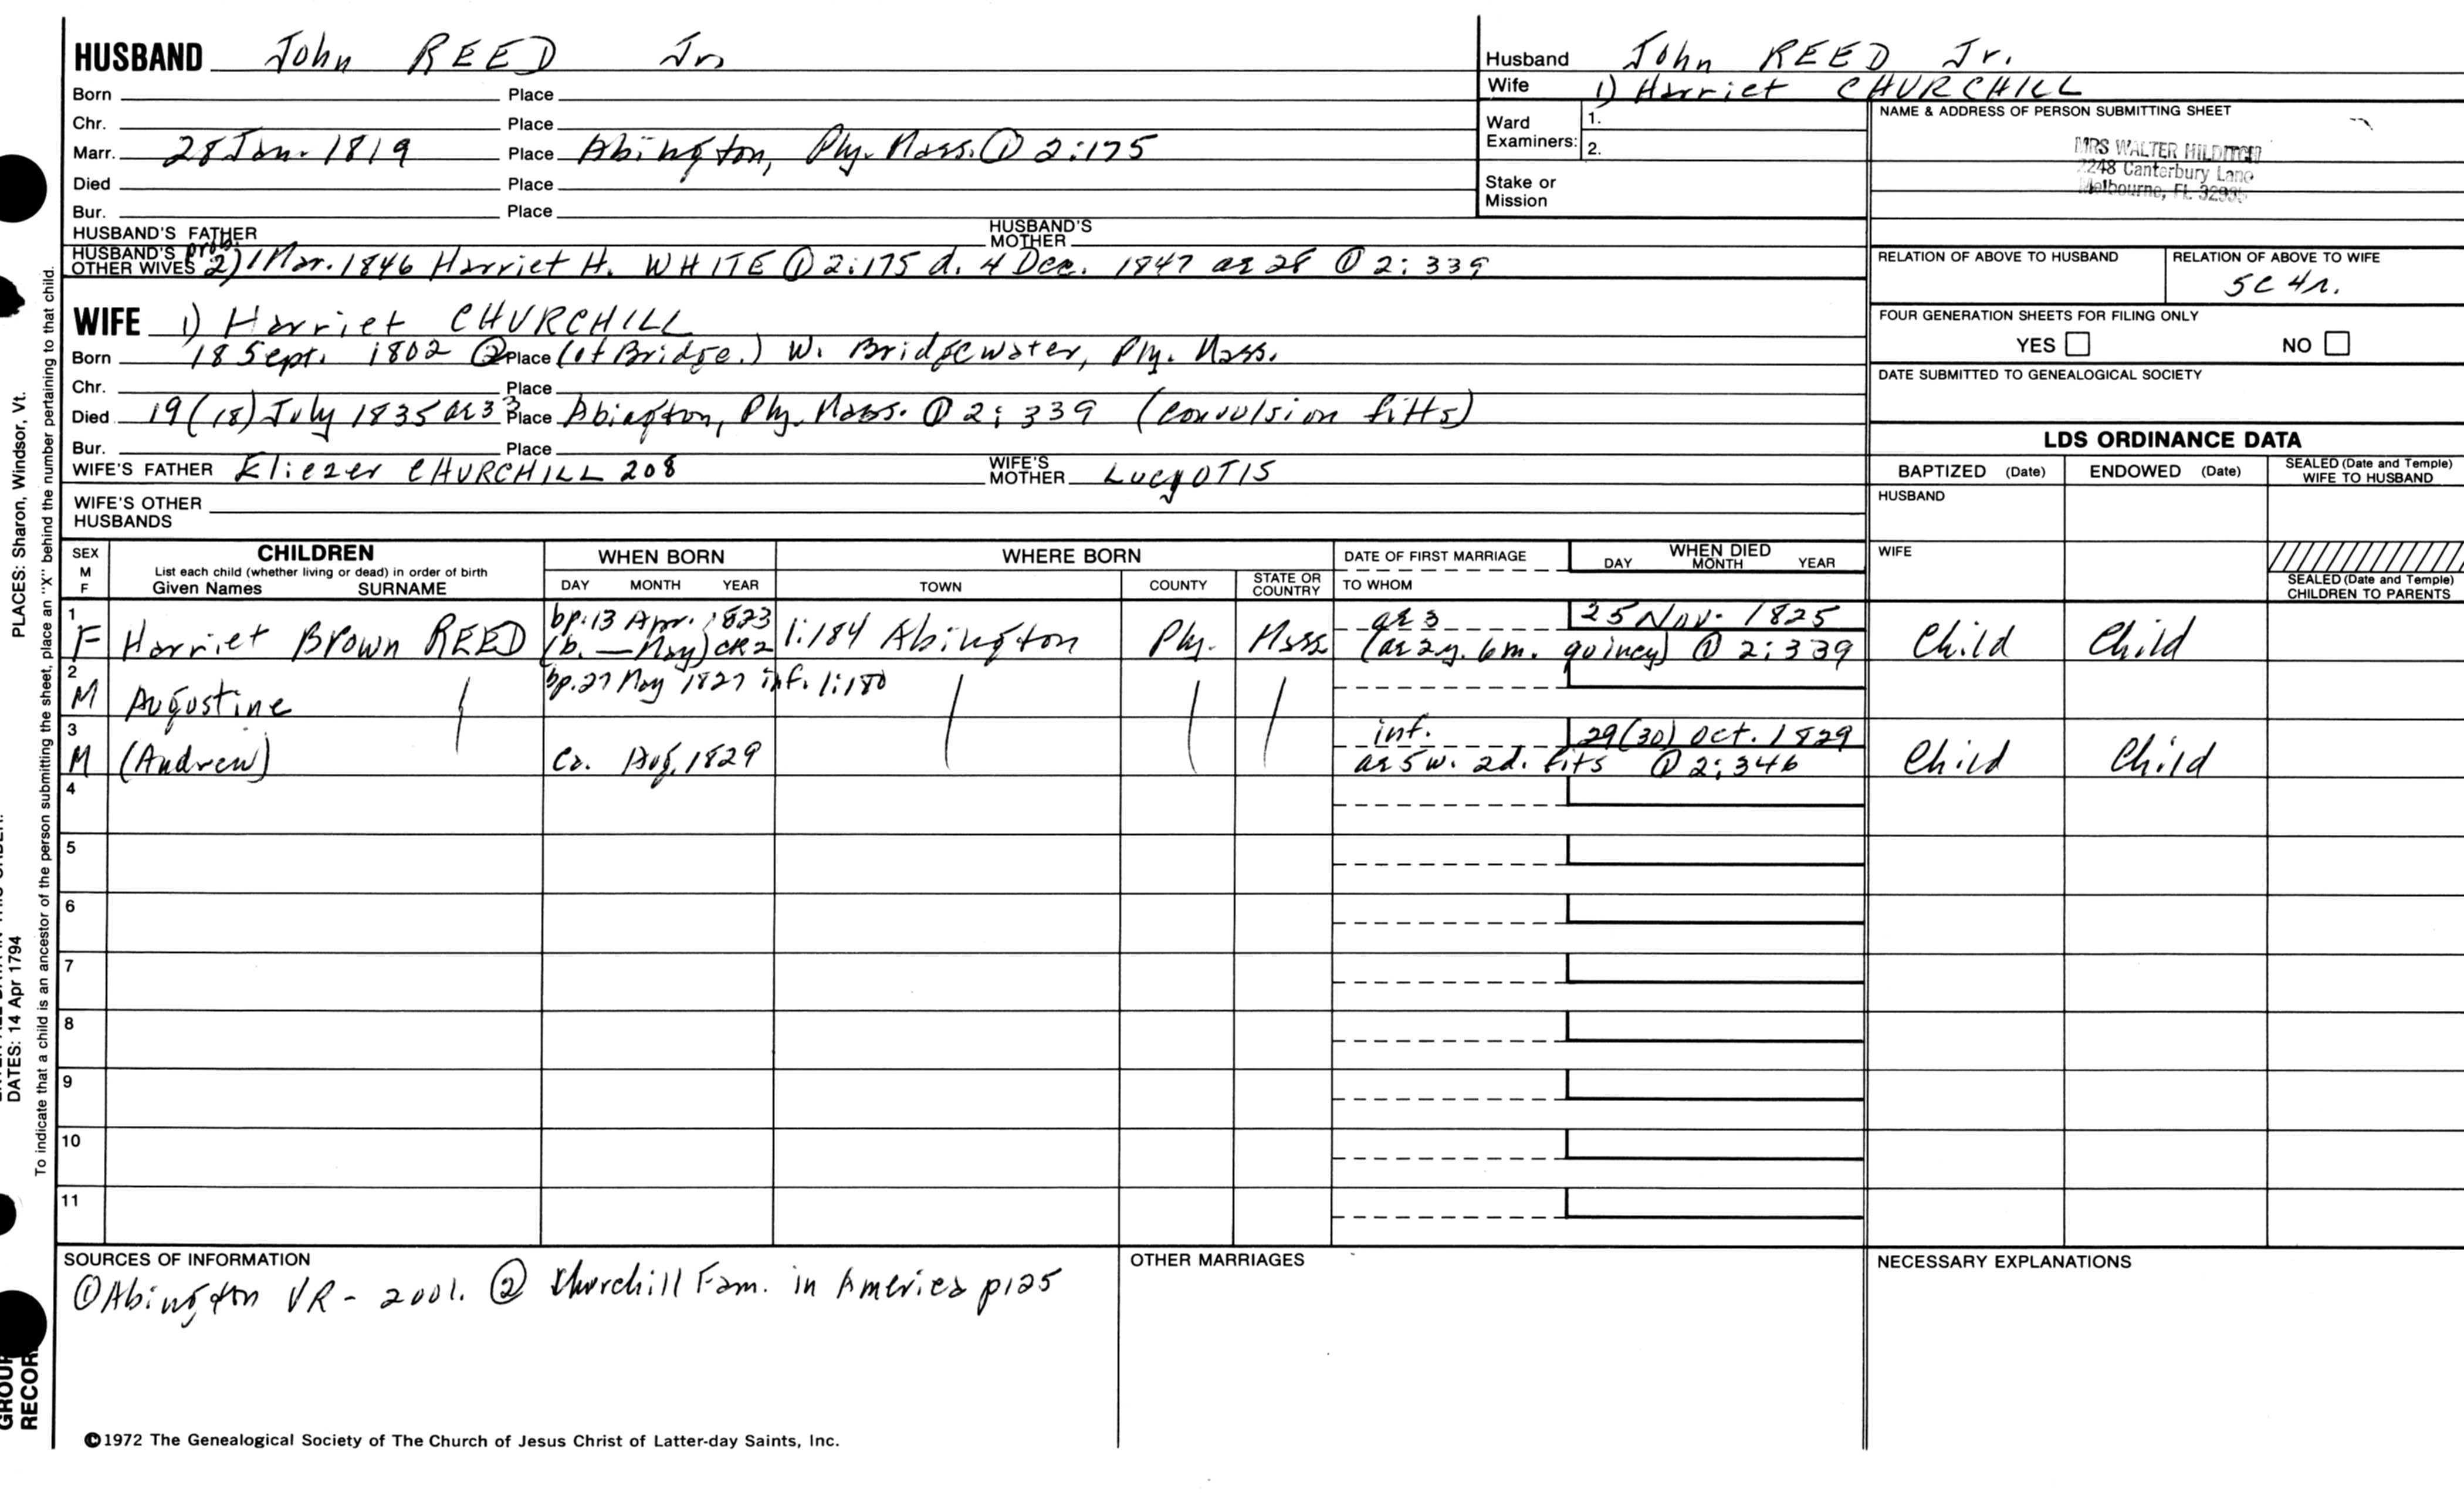 HUSBAND John REED Jr.
Born Place
Chr. Place
Marr. 28 Jan. 1819 Place Abington, Ply. Mass. ① 2:175
Died Place
Bur. Place
HUSBAND'S FATHER HUSBAND'S MOTHER
HUSBAND'S OTHER WIVES prob. 2) 1 Mar. 1846 Harriet H. WHITE ① 2:175 d. 4 Dec. 1847 ae 28 ① 2:339
WIFE 1) Harriet CHURCHILL
Born 18 Sept. 1802 ② Place (of Bridge.) W. Bridgewater, Ply. Mass.
Chr. Place
Died 19(18) July 1835 ae 33 Place Abington, Ply. Mass. ① 2:339 (convulsion fitts)
Bur. Place
WIFE'S FATHER Eliezer CHURCHILL 208 WIFE'S MOTHER Lucy OTIS
WIFE'S OTHER HUSBANDS
Husband John REED Jr.
Wife 1) Harriet CHURCHILL
Ward Examiners: 1.
2.
Stake or Mission
NAME & ADDRESS OF PERSON SUBMITTING SHEET
MRS WALTER
Canterbury Lane
Melbourne, FL
RELATION OF ABOVE TO HUSBAND RELATION OF ABOVE TO WIFE
5C 4r.
FOUR GENERATION SHEETS FOR FILING ONLY
YES NO
DATE SUBMITTED TO GENEALOGICAL SOCIETY
LDS ORDINANCE DATA
BAPTIZED (Date) ENDOWED (Date) SEALED (Date and Temple) WIFE TO HUSBAND
HUSBAND
WIFE
SEALED (Date and Temple) CHILDREN TO PARENTS
SEX M F CHILDREN WHEN BORN WHERE BORN DATE OF FIRST MARRIAGE WHEN DIED
List each child (whether living or dead) in order of birth
Given Names SURNAME DAY MONTH YEAR TOWN COUNTY STATE OR COUNTRY TO WHOM DAY MONTH YEAR
1 bp. 13 Apr. 1823 ae 3 25 Nov. 1825
F Harriet Brown REED (b. — May) CR2 1:184 Abington Ply. Mass (ae 2y. 6m. quincy) ① 2:339 Child Child
2 bp. 27 May 1827 inf. 1:180
M Augustine
3 inf. 29(30) Oct. 1829
M (Andrew) Ca. Aug. 1829 ae 5w. 2d. fits ① 2:346 Child Child
4
5
6
7
8
9
10
11
SOURCES OF INFORMATION OTHER MARRIAGES NECESSARY EXPLANATIONS
① Abington VR - 2001. ② Churchill Fam. in America p125
©1972 The Genealogical Society of The Church of Jesus Christ of Latter-day Saints, Inc.
PLACES: Sharon, Windsor, Vt.
DATES: 14 Apr 1794
To indicate that a child is an ancestor of the person submitting the sheet, place an "X" behind the number pertaining to that child.
GROUP
RECOR